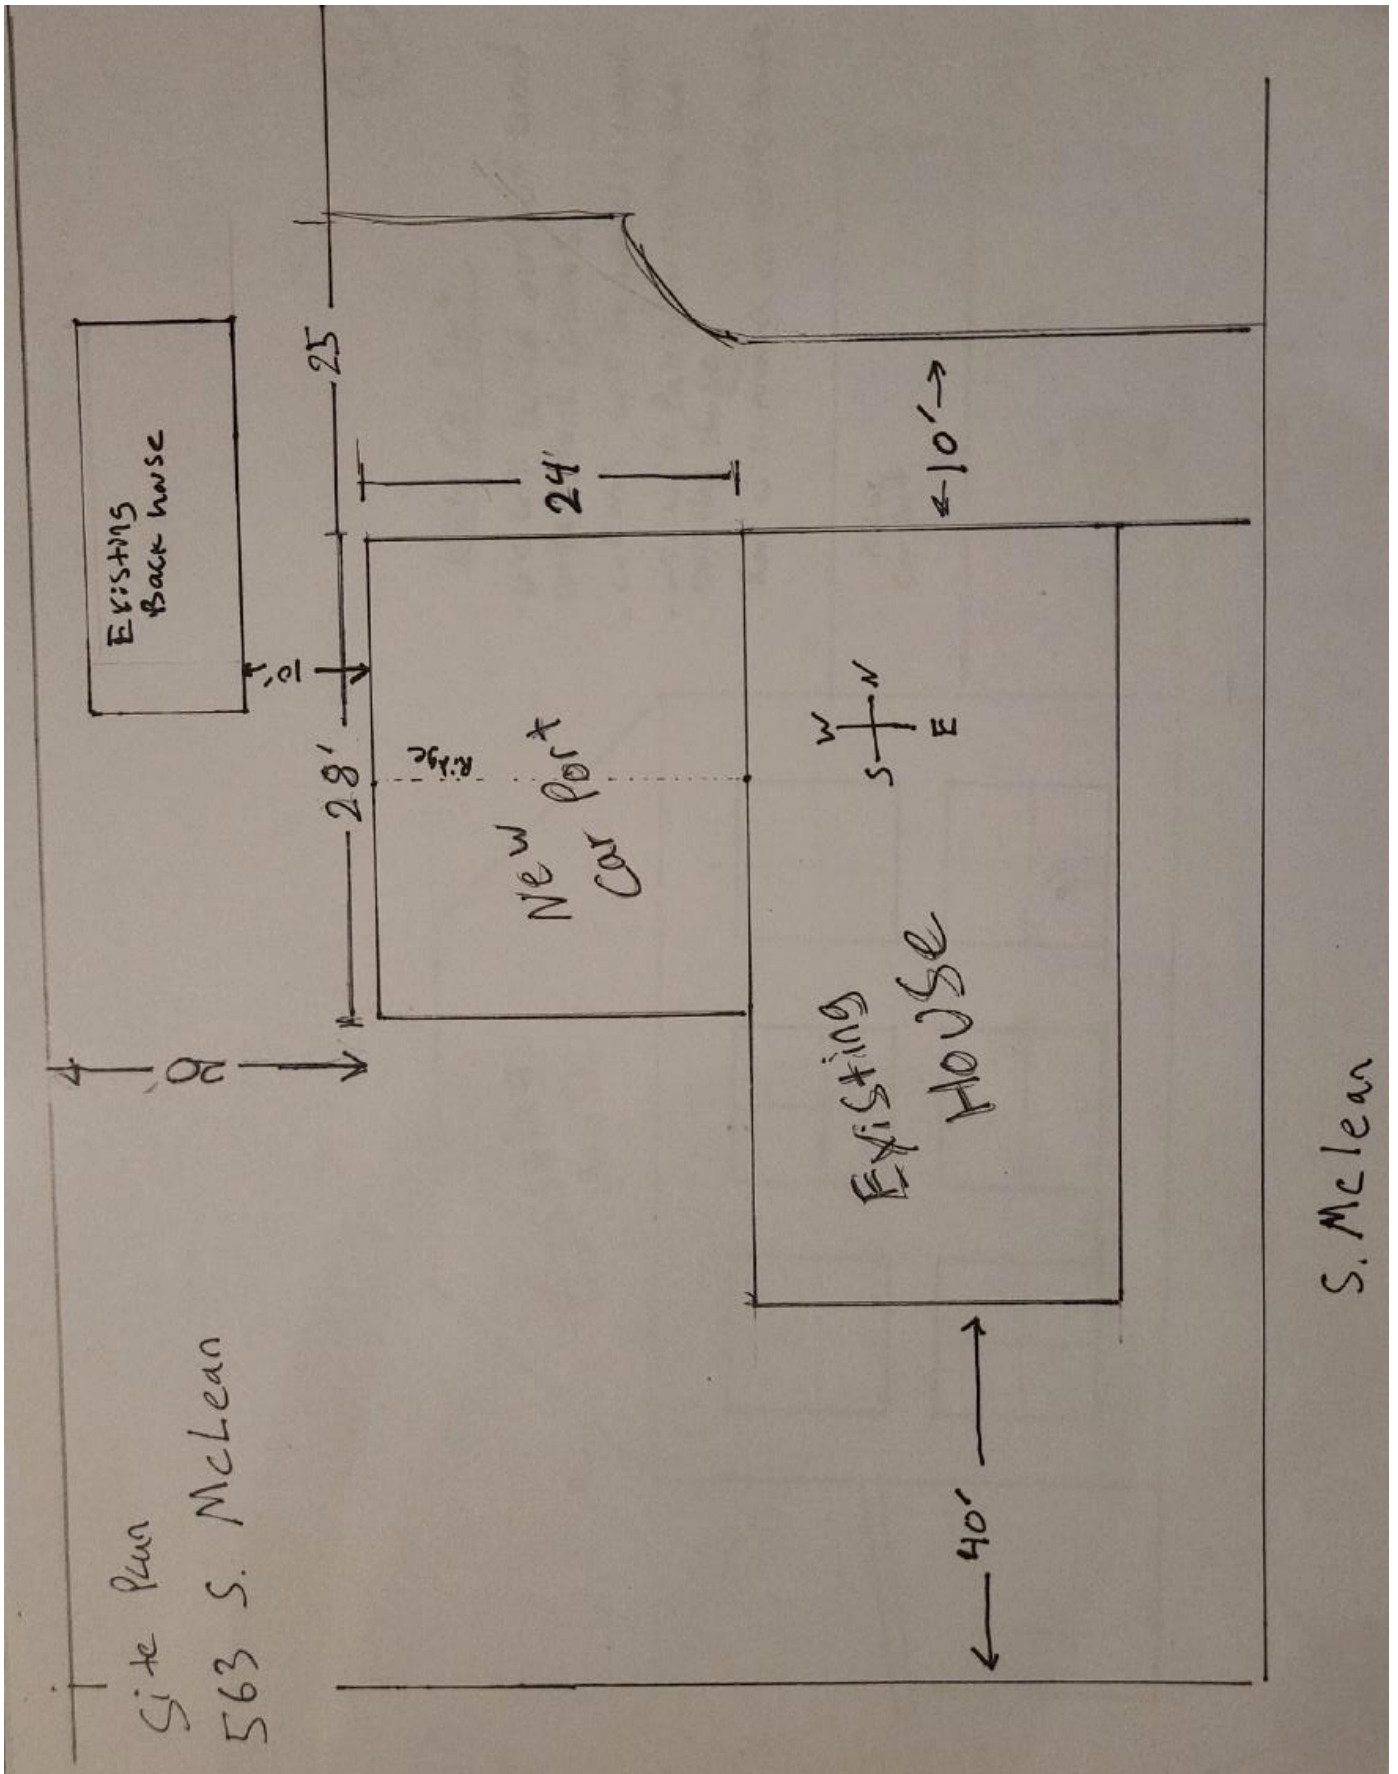 Site Plan
563 S. McLean
Existing
Back house
10'
20'
28'
25
24'
Ridge
New
Car Port
W
S N
E
Existing
House
40'
10'
S. Mclean